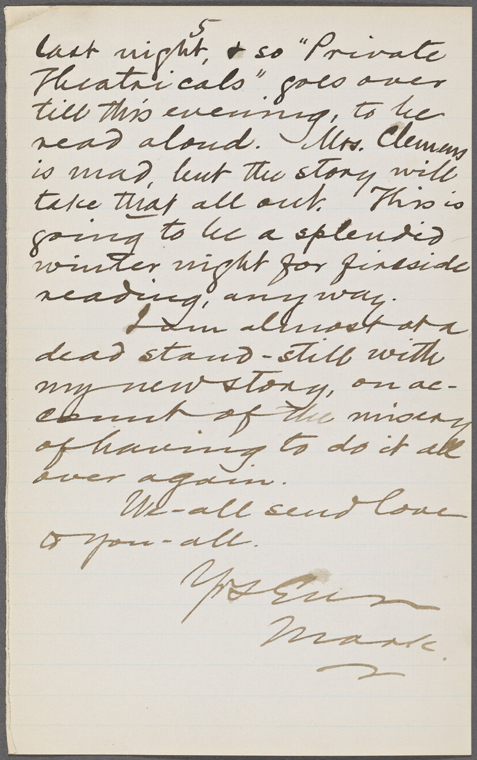 5
last night, & so "Private
Theatricals" goes over
till this evening, to be
read aloud. Mrs. Clemens
is mad, but the story will
take that all out. This is
going to be a splendid
winter night for fireside
reading, anyway.
I am almost at a
dead stand-still with
my new story, on ac-
count of the misery
of having to do it all
over again.
We-all send love
to you-all.
Yrs Ever
Mark.